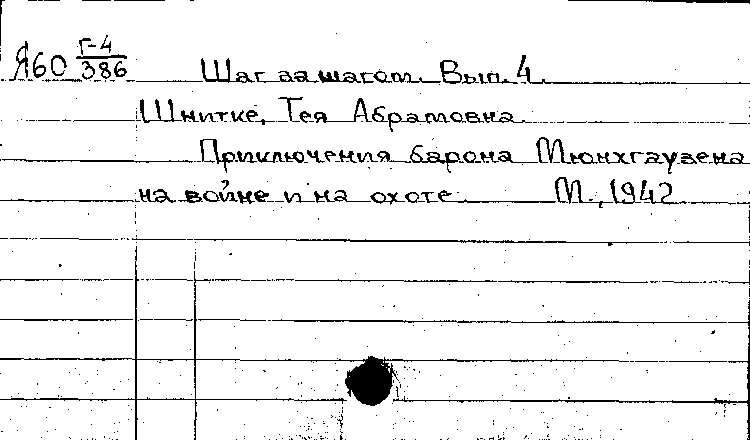 Я60 Г-4/386 Шаг за шагом. Вып. 4.
Шнитке, Тея Абрамовна.
Приключения барона Мюнхгаузена
на войне и на охоте. М., 1942